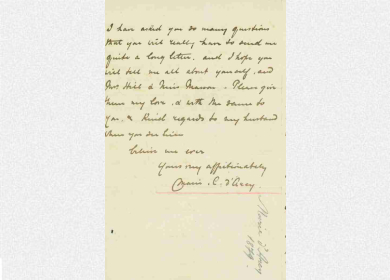 I have asked you so many questions
that you will really have to send me
quite a long letter, and I hope you
will tell me all about yourself, and
Mrs Hill & Miss Mawson. - Please give
them my love, & with the same to
you, & Kind regards to my husband
when you see him
believe me ever
Yours very affectionately
Marie. C. d'Arcy
Marie d'Arcy